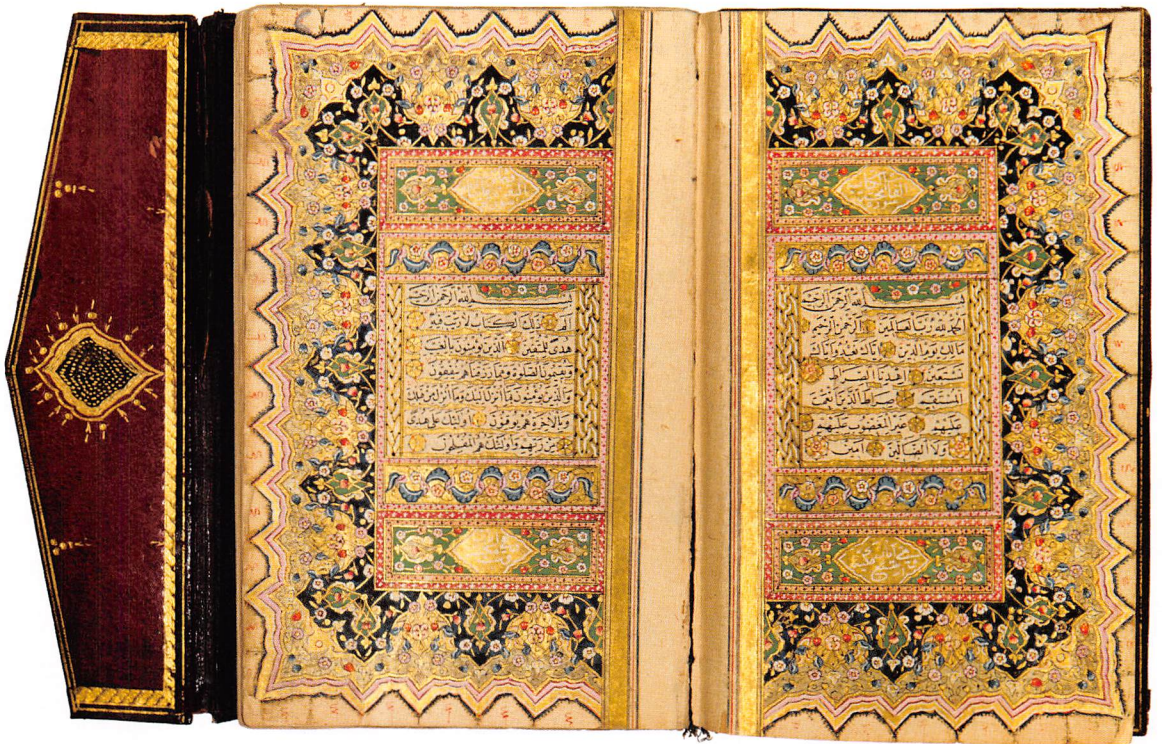 بسم الله الرحمن الرحيم
الحمد لله رب العالمين الرحمن الرحيم
مالك يوم الدين اياك نعبد واياك
نستعين اهدنا الصراط
المستقيم صراط الذين انعمت
عليهم غير المغضوب عليهم
ولا الضالين آمين
بسم الله الرحمن الرحيم
الم ذلك الكتاب لا ريب فيه
هدى للمتقين الذين يؤمنون بالغيب
ويقيمون الصلوة ومما رزقناهم ينفقون
والذين يؤمنون بما انزل اليك وما انزل من قبلك
وبالآخرة هم يوقنون اولئك على هدى
من ربهم واولئك هم المفلحون